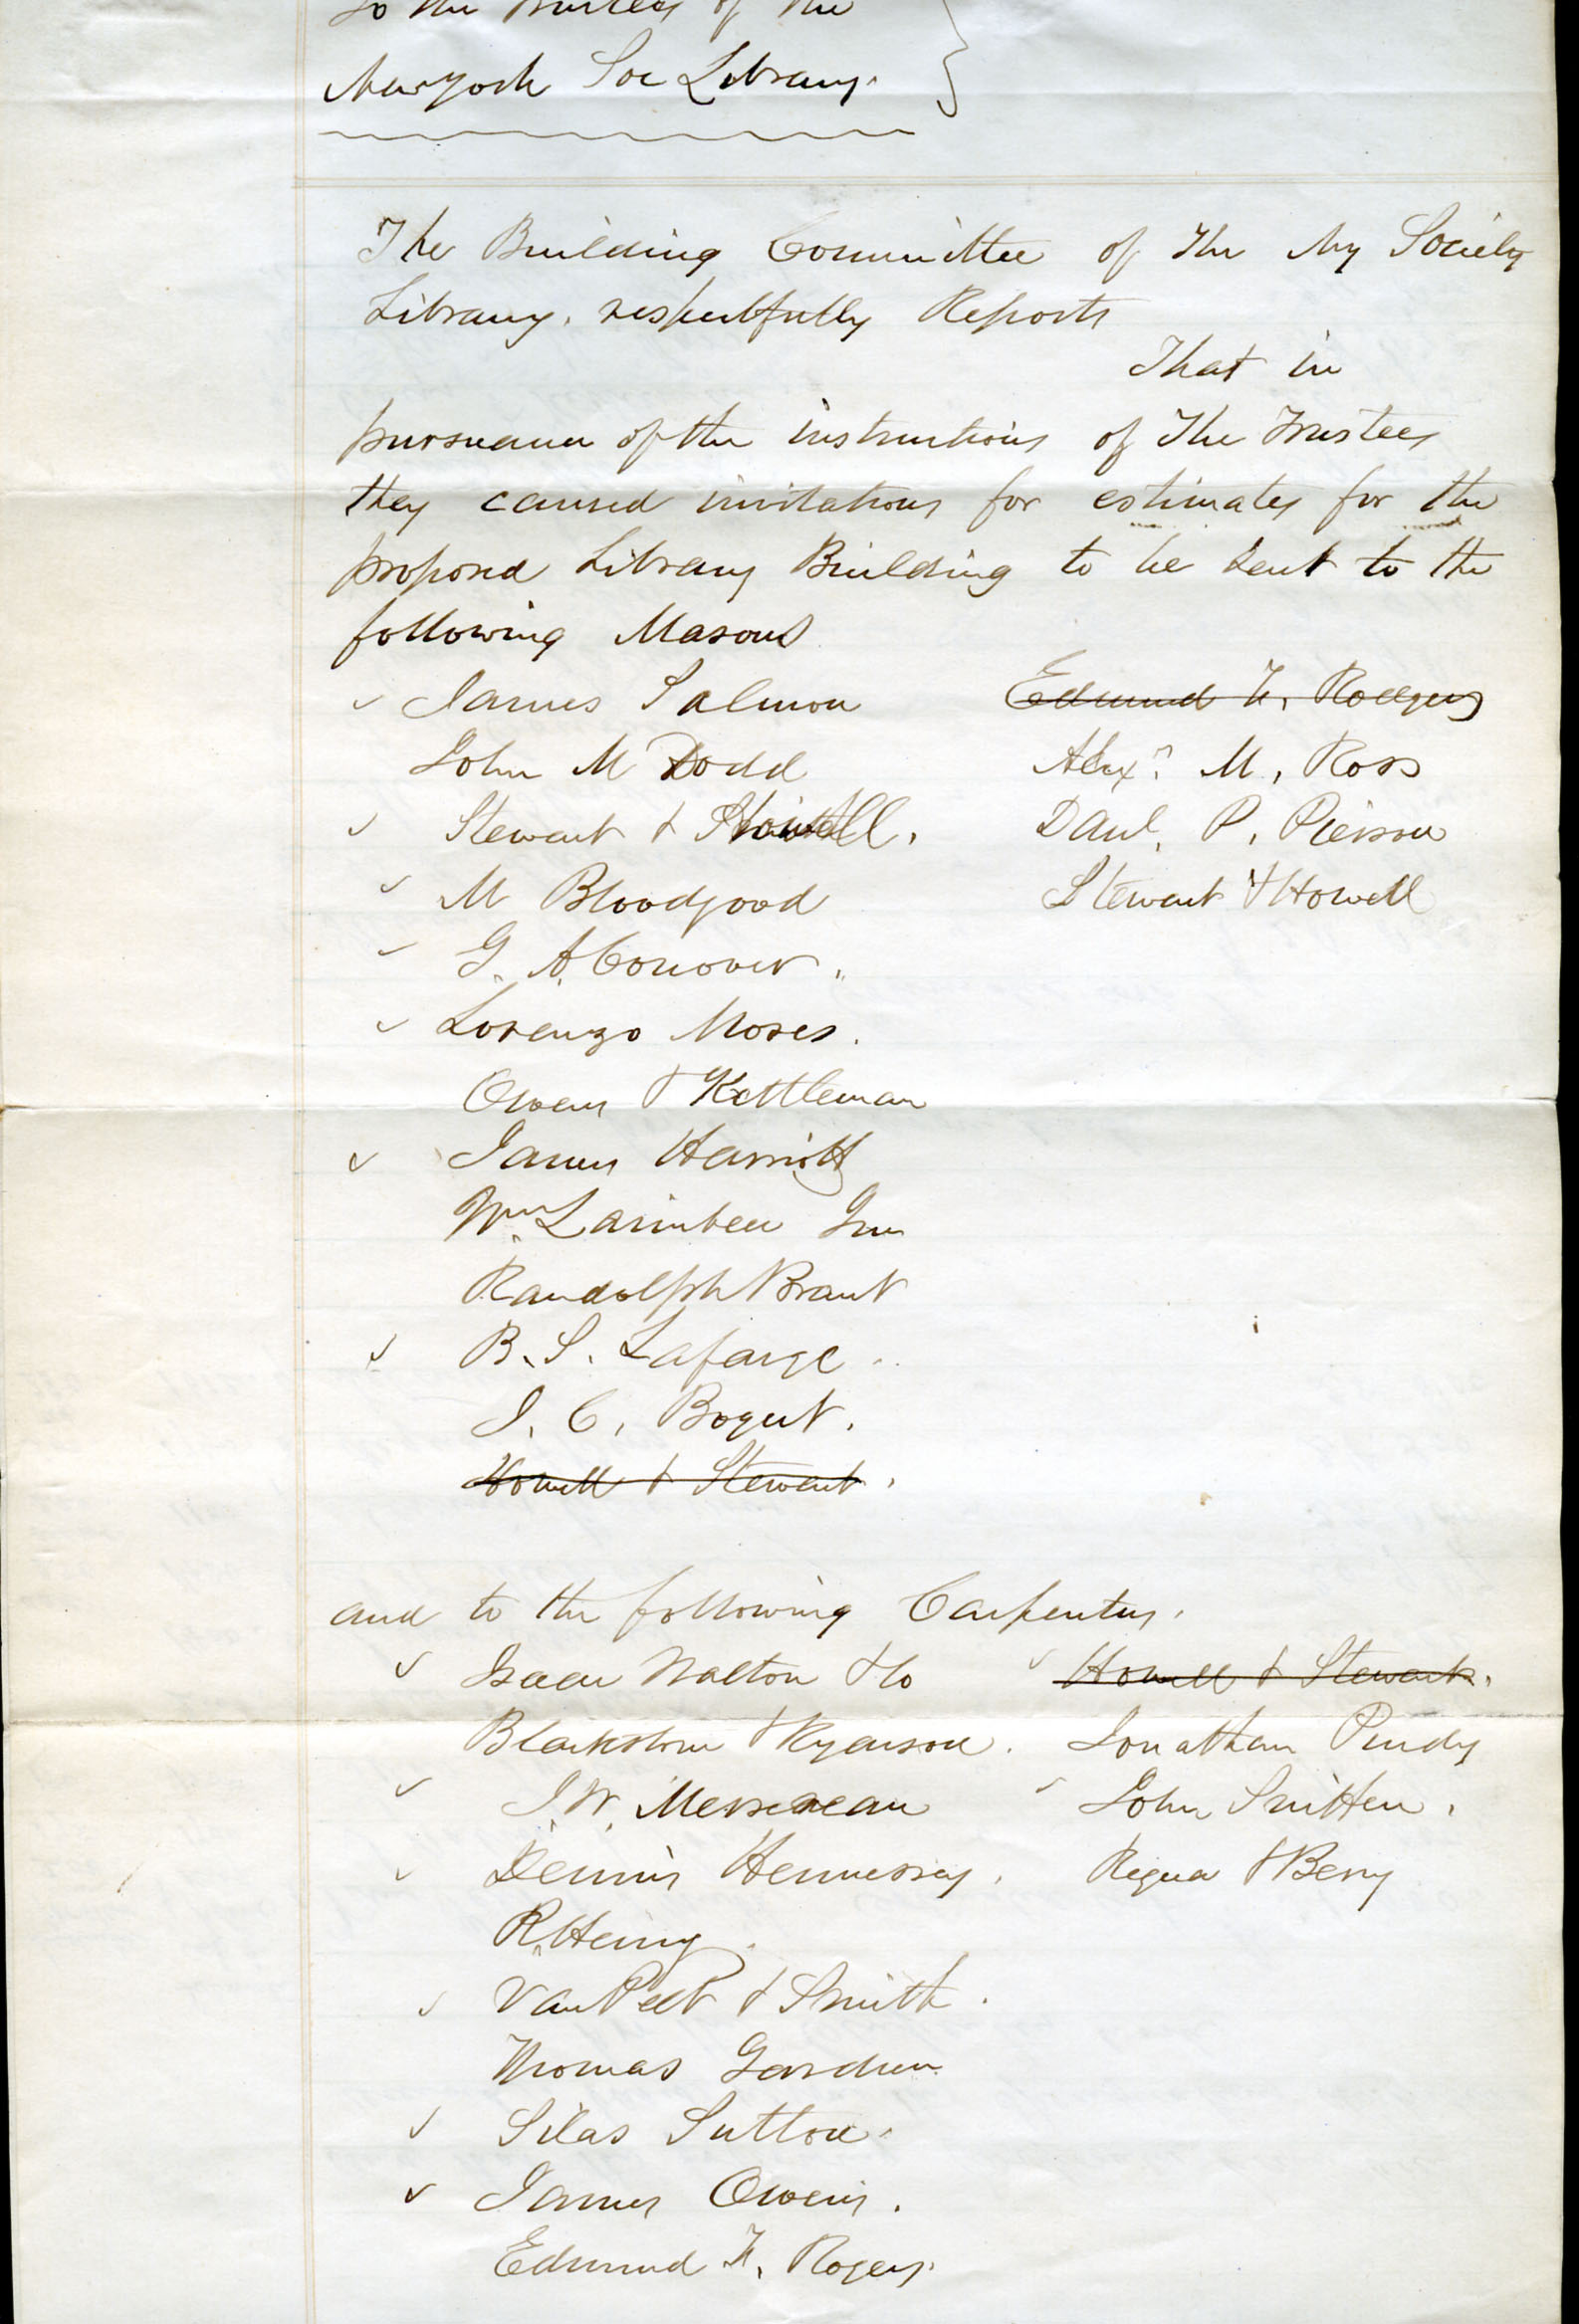 To the Trustees of the
New York Soc Library.
The Building Committee of The Ny Society
Library, respectfully Reports
That in
pursuance of the instructions of The Trustees
they caused invitations for estimates for the
proposed Library Building to be sent to the
following Masons
✓ James Salmon
John M Dodd
✓ Stewart &
✓ M Bloodgood
✓ G. A. Conover.
✓ Lorenzo Moses.
Owens & Kettleman
✓ James Harriott
Wm Jnr
Randolph Brant
✓ B. S. Lafarge.
J. C. Bogert.
Howell & Stewart.
Edmund F. Rodgers
Alexr. M. Ross
Danl. P. Pierson
Stewart & Howell
and to the following Carpenters.
✓ Isaac Walton & Co
Blackstone & Ryerson.
✓ J. W. Mersereau
✓ Dennis Hennessy.
R. Henry.
✓ Van Pelt & Smith.
Thomas Gardner
✓ Silas Sutton.
✓ James Owens.
Edmund F. Rogers.
✓ Howell & Stewart.
Jonathan Purdy
✓ John Sniffen.
Requa & Berry